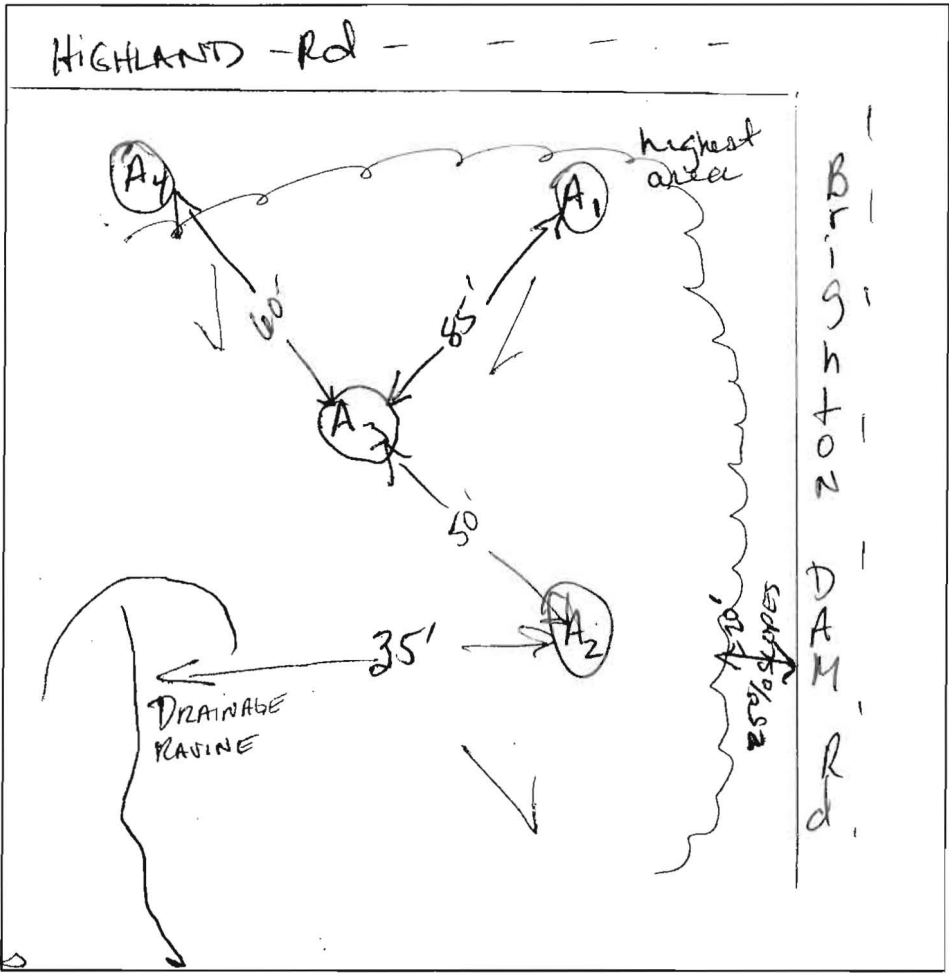 HIGHLAND - Rd - - - . -
highest
area
A4
A1
60'
45'
A3
50'
A2
35'
DRAINAGE
RAVINE
20'
25% SLOPES
Brighton DAM Rd.